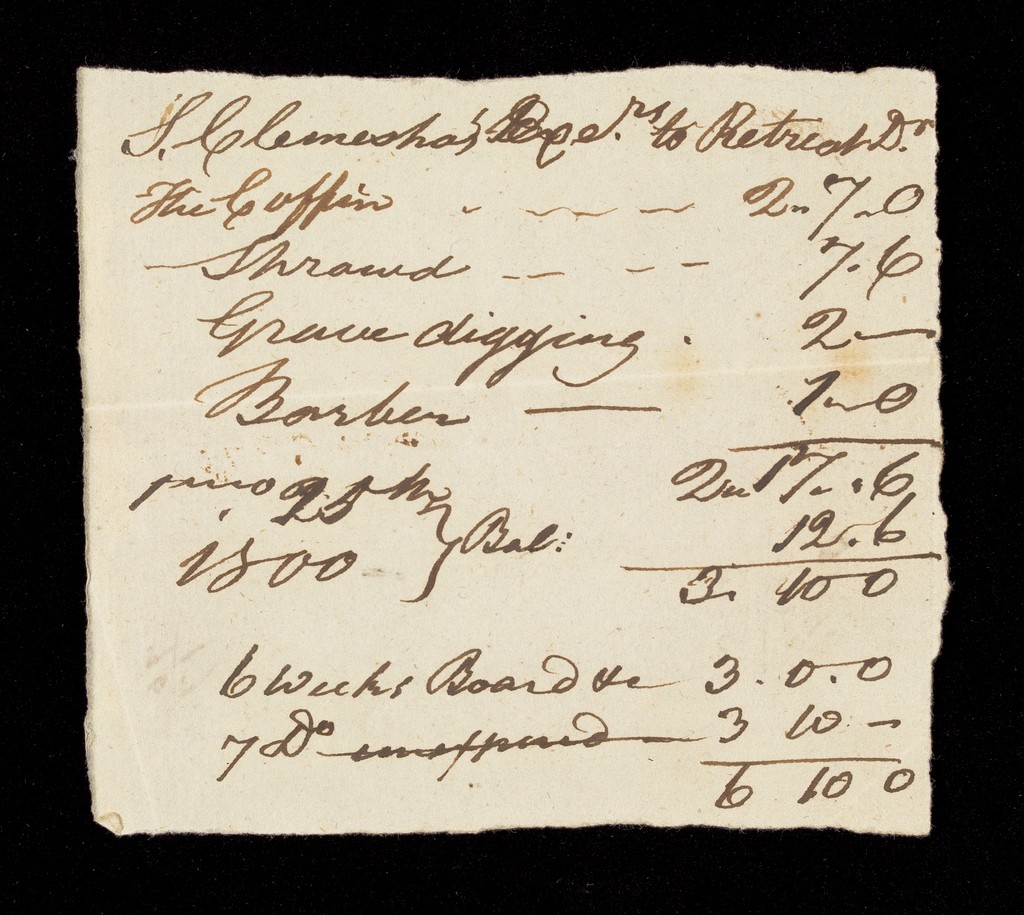 S. Clemesha's Exe.rs to Retreat Dr.
The Coffin - - - - 2 " 7 " 0
— Shrowd - - - - 7 . 6
Grave digging . 2 —
Barber — 1 " 0
2 " 17 " 6
25
1800 } Bal: 12 . 6
3 . 10 0
6 weeks Board &c 3 . 0 . 0
7 Do unexpired — 3 10 —
6 10 0